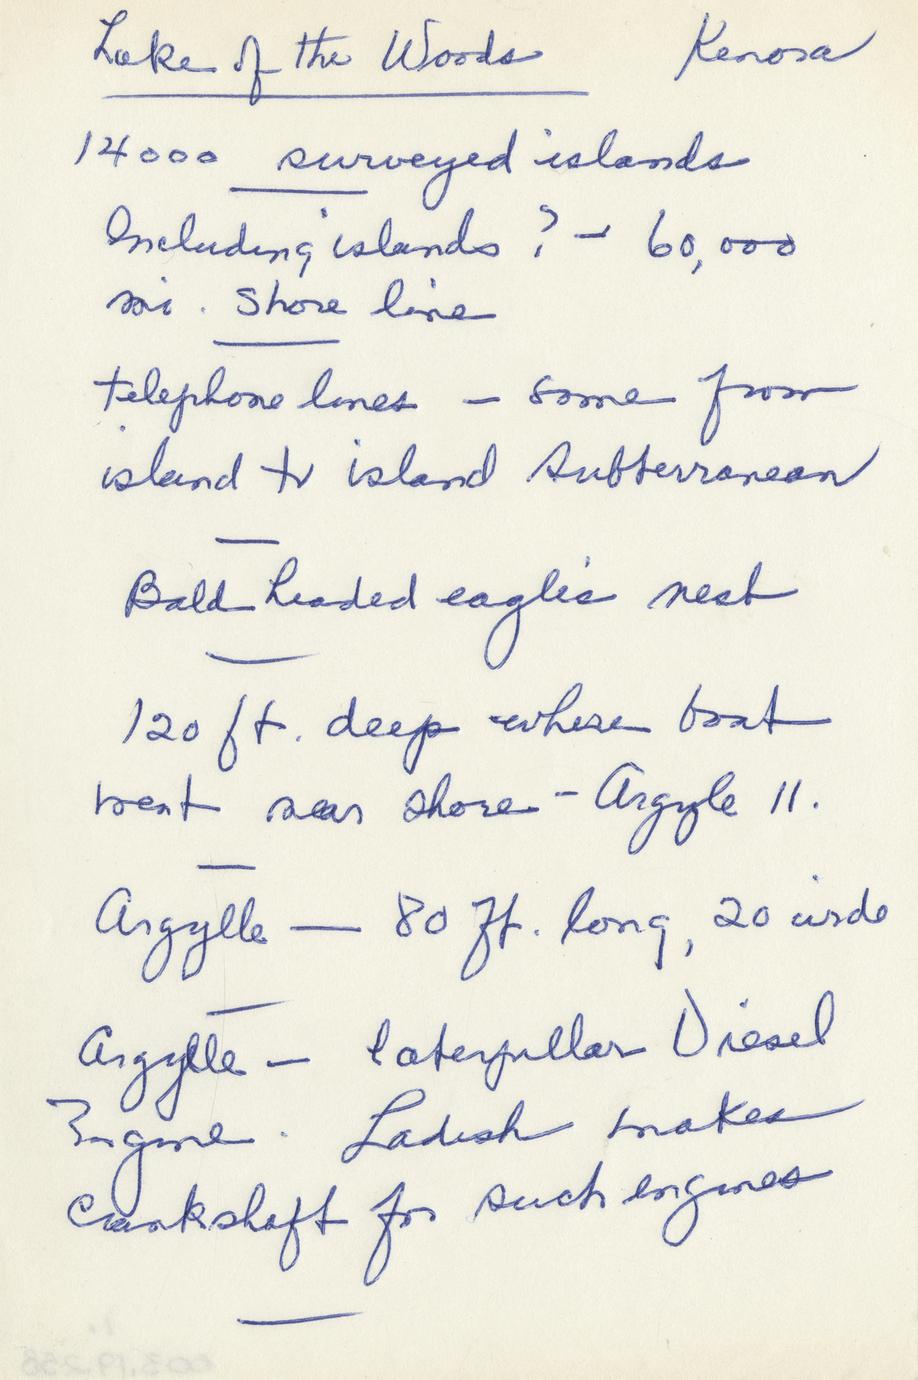 Lake of the Woods Kenora
14000 surveyed islands
Including islands ? - 60,000
mi. Shore line
telephone lines - some from
island to island subterranean
Bald headed eagle's nest
120 ft. deep where boat
went near shore - Argyle 11.
Argylle - 80 ft. long, 20 wide
Argylle - Caterpillar Diesel
Engine. Ladish makes
crankshaft for such engines